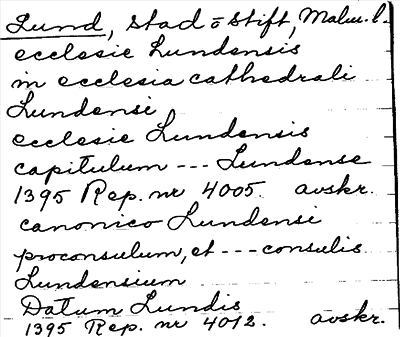 Lund, stad o stift, Malm. l.
ecclesie Lundensis
in ecclesia cathedrali
Lundensi
ecclesie Lundensis
capitulum --- Lundense
1395 Rep. nr 4005. avskr.
canonico Lundensi
proconsulum, et --- consulis
Lundensium
Datum Lundis
1395 Rep. nr 4012. avskr.